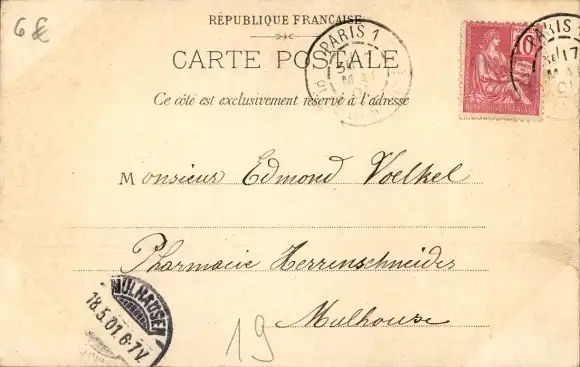 6€
RÉPUBLIQUE FRANÇAISE
CARTE POSTALE
Ce côté est exclusivement réservé à l'adresse
PARIS 1
MAI
PARIS 1
17
MAI
10
Monsieur Edmond Voelkel
Pharmacie Herrenschneider
Mulhouse
MÜLHAUSEN
18.5.01.6-7V.
19